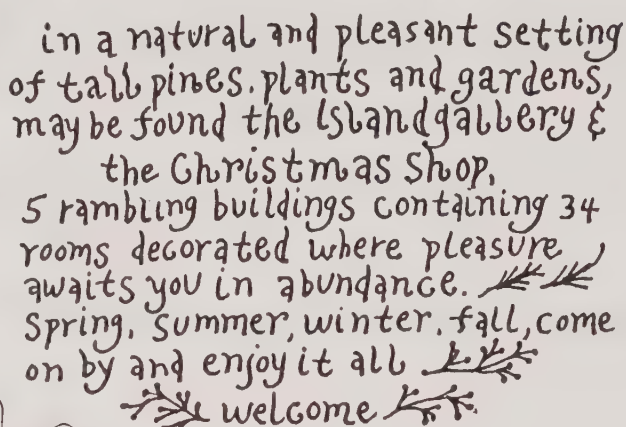 in a natural and pleasant setting
of tall pines. plants and gardens,
may be found the Island gallery &
the Christmas Shop,
5 rambling buildings containing 34
rooms decorated where pleasure
awaits you in abundance.
Spring, summer, winter, fall, come
on by and enjoy it all
welcome